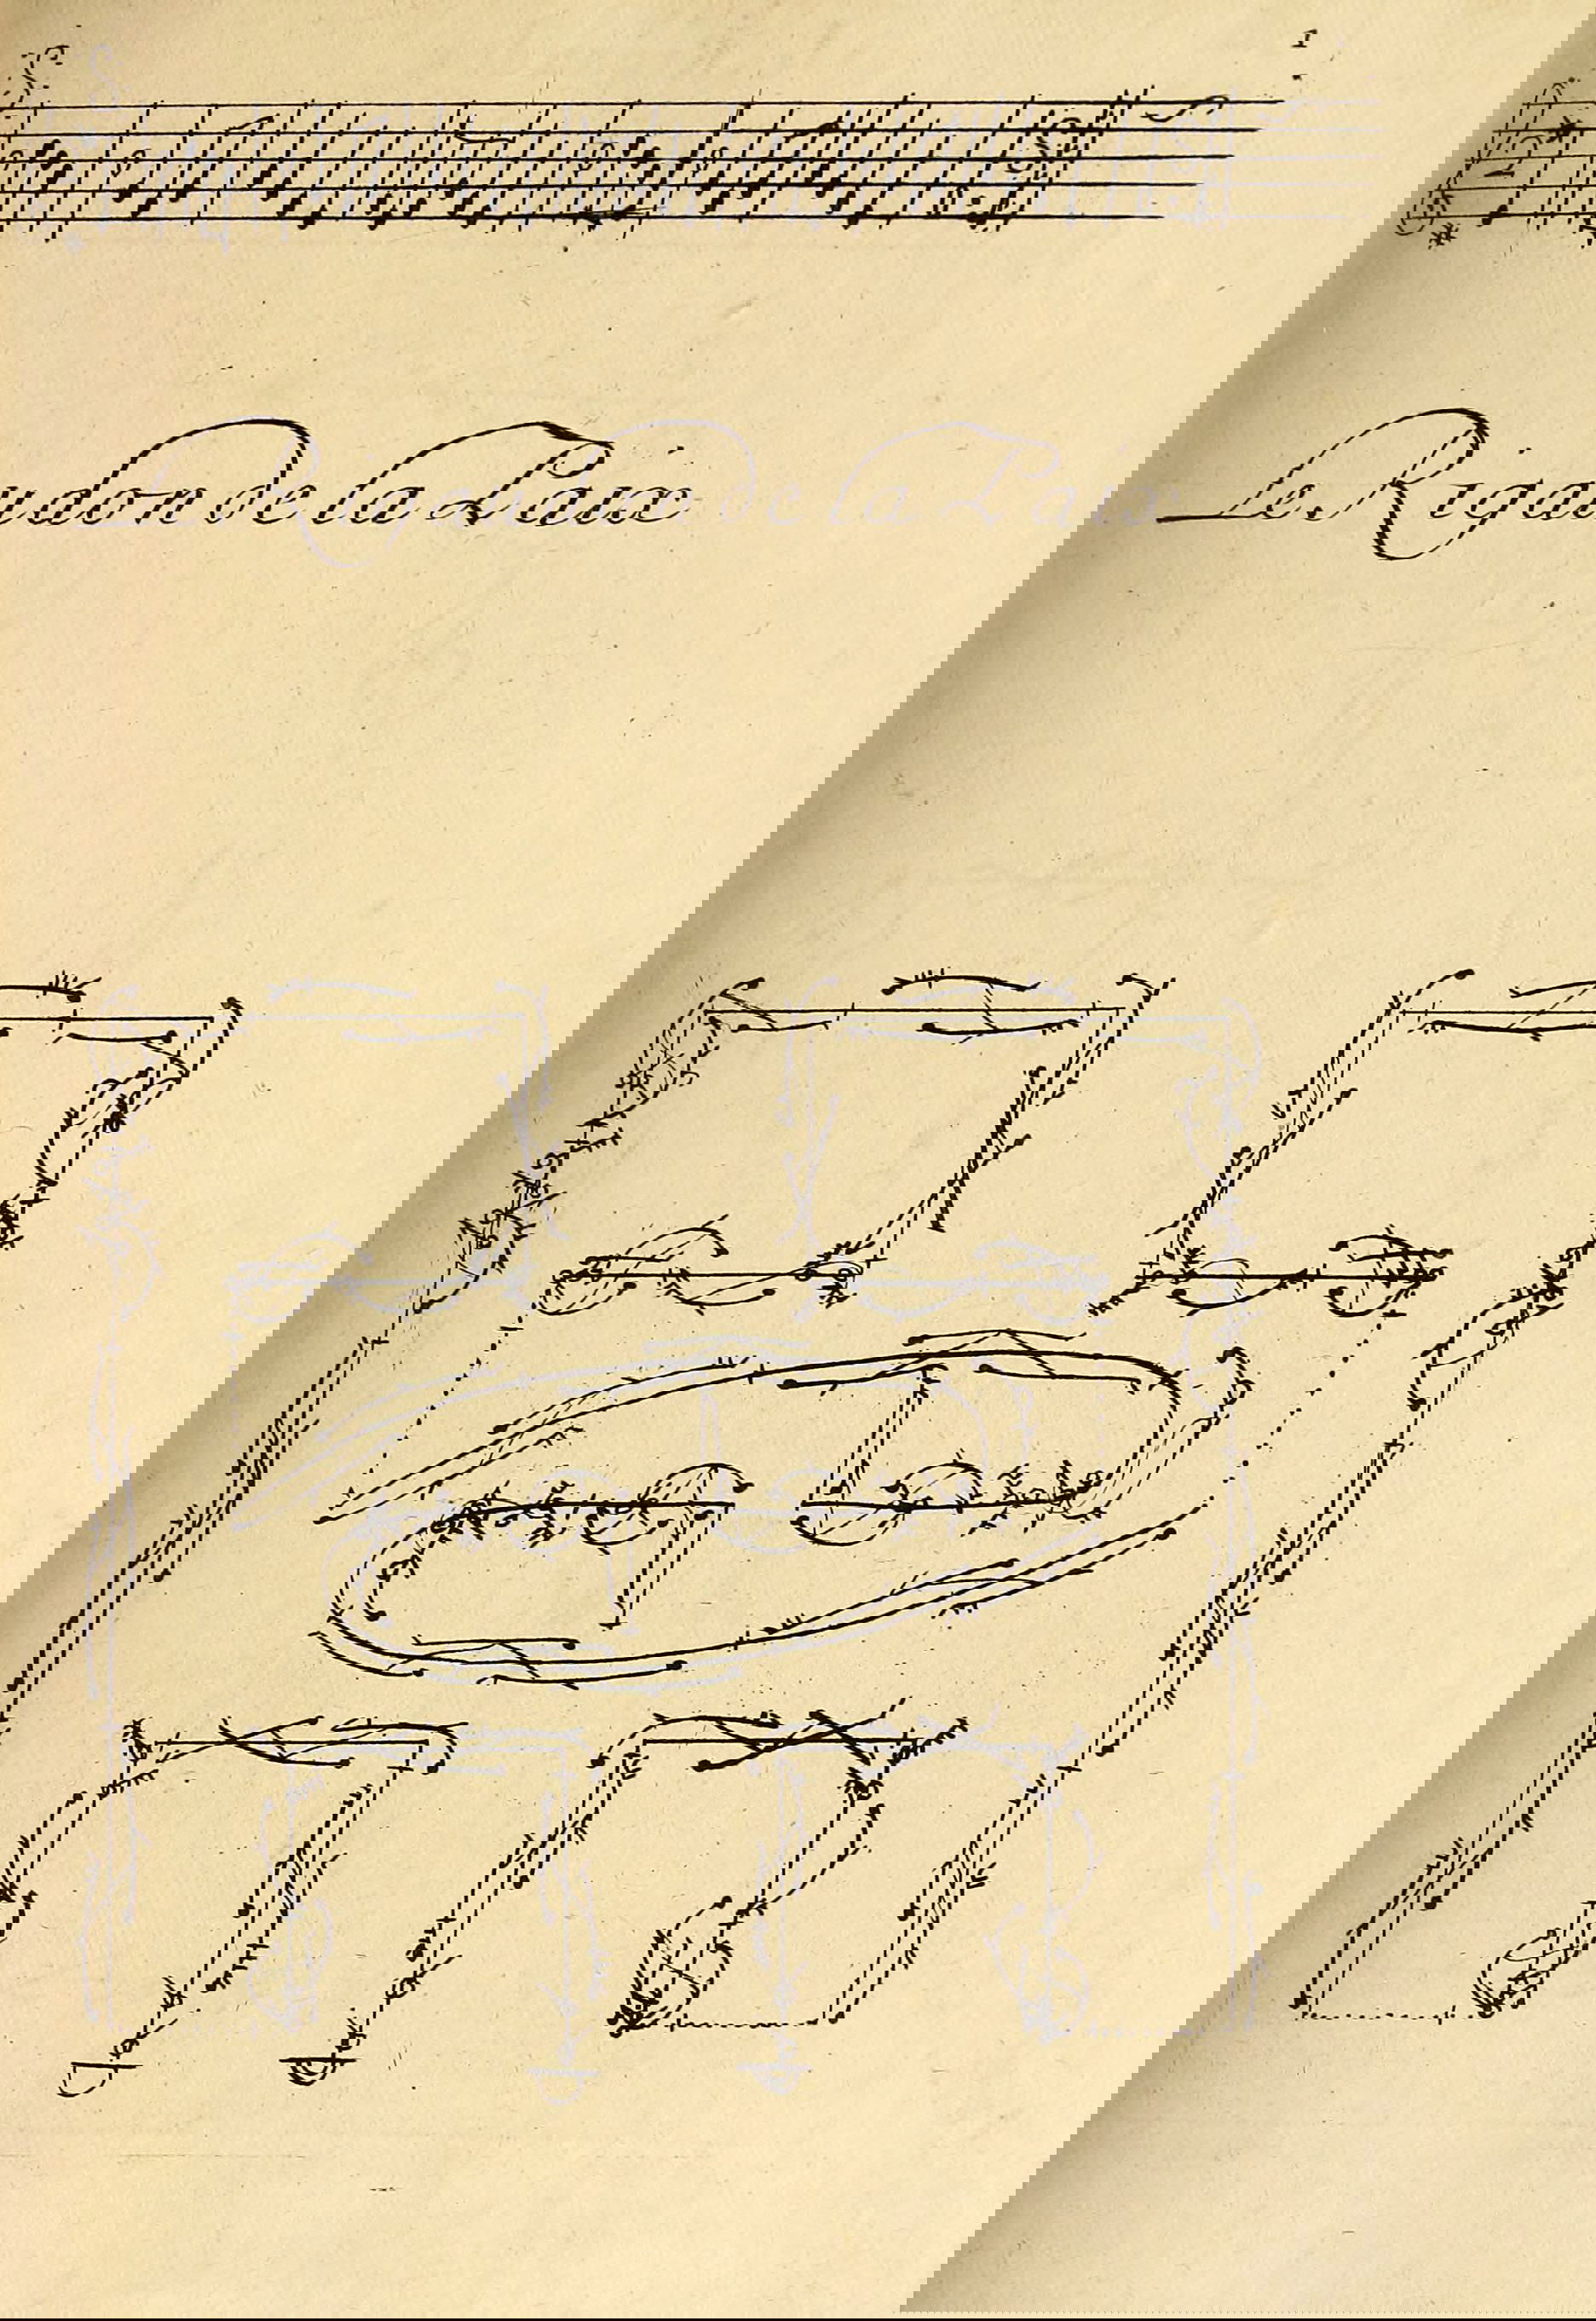 udon de la Paix Le Riga